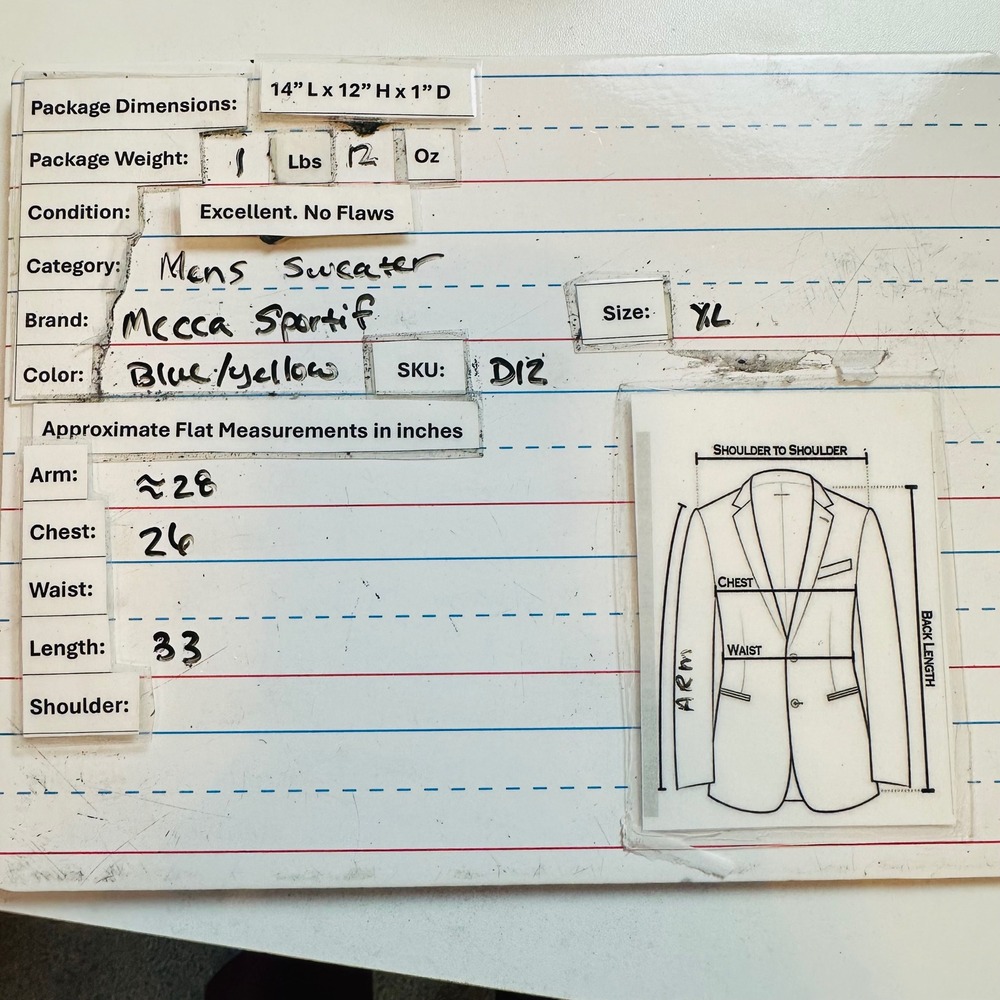 Package Dimensions: 14” L x 12” H x 1” D
Package Weight: 1 Lbs 12 Oz
Condition: Excellent. No Flaws
Category: Mens Sweater
Brand: Mecca Sportif Size: XL
Color: Blue/yellow SKU: D12
Approximate Flat Measurements in inches
Arm: ≈28
Chest: 26
Waist:
Length: 33
Shoulder:
SHOULDER TO SHOULDER
CHEST
WAIST
ARM
BACK LENGTH